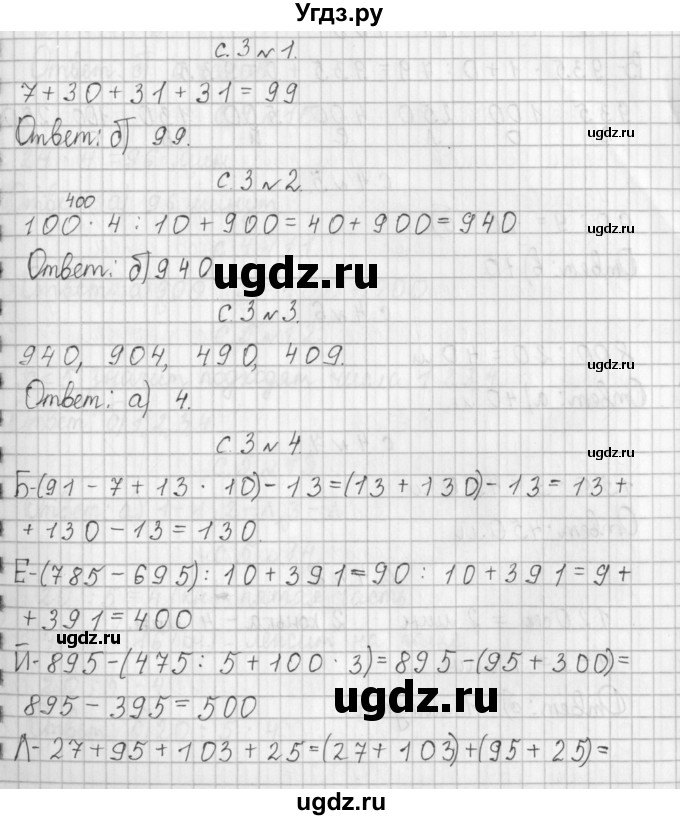 Угдз.ру
с. 3 № 1.
7 + 30 + 31 + 31 = 99
Ответ: б) 99.
ugdz.ru
с. 3 № 2.
400
100 · 4 : 10 + 900 = 40 + 900 = 940
ugdz.ru
Ответ: б) 940
ugdz.ru
с. 3 № 3.
940, 904, 490, 409.
ugdz.ru
Ответ: а) 4.
с. 3 № 4.
ugdz.ru
Б-(91 - 7 + 13 · 10) - 13 = (13 + 130) - 13 = 13 +
+ 130 - 13 = 130.
Е-(785 - 695) : 10 + 391 = 90 : 10 + 391 = 9 +
+ 391 = 400
ugdz.ru
Й- 895 - (475 : 5 + 100 · 3) = 895 - (95 + 300) =
895 - 395 = 500
ugdz.ru
Л- 27 + 95 + 103 + 25 = (27 + 103) + (95 + 25) =
ugdz.ru